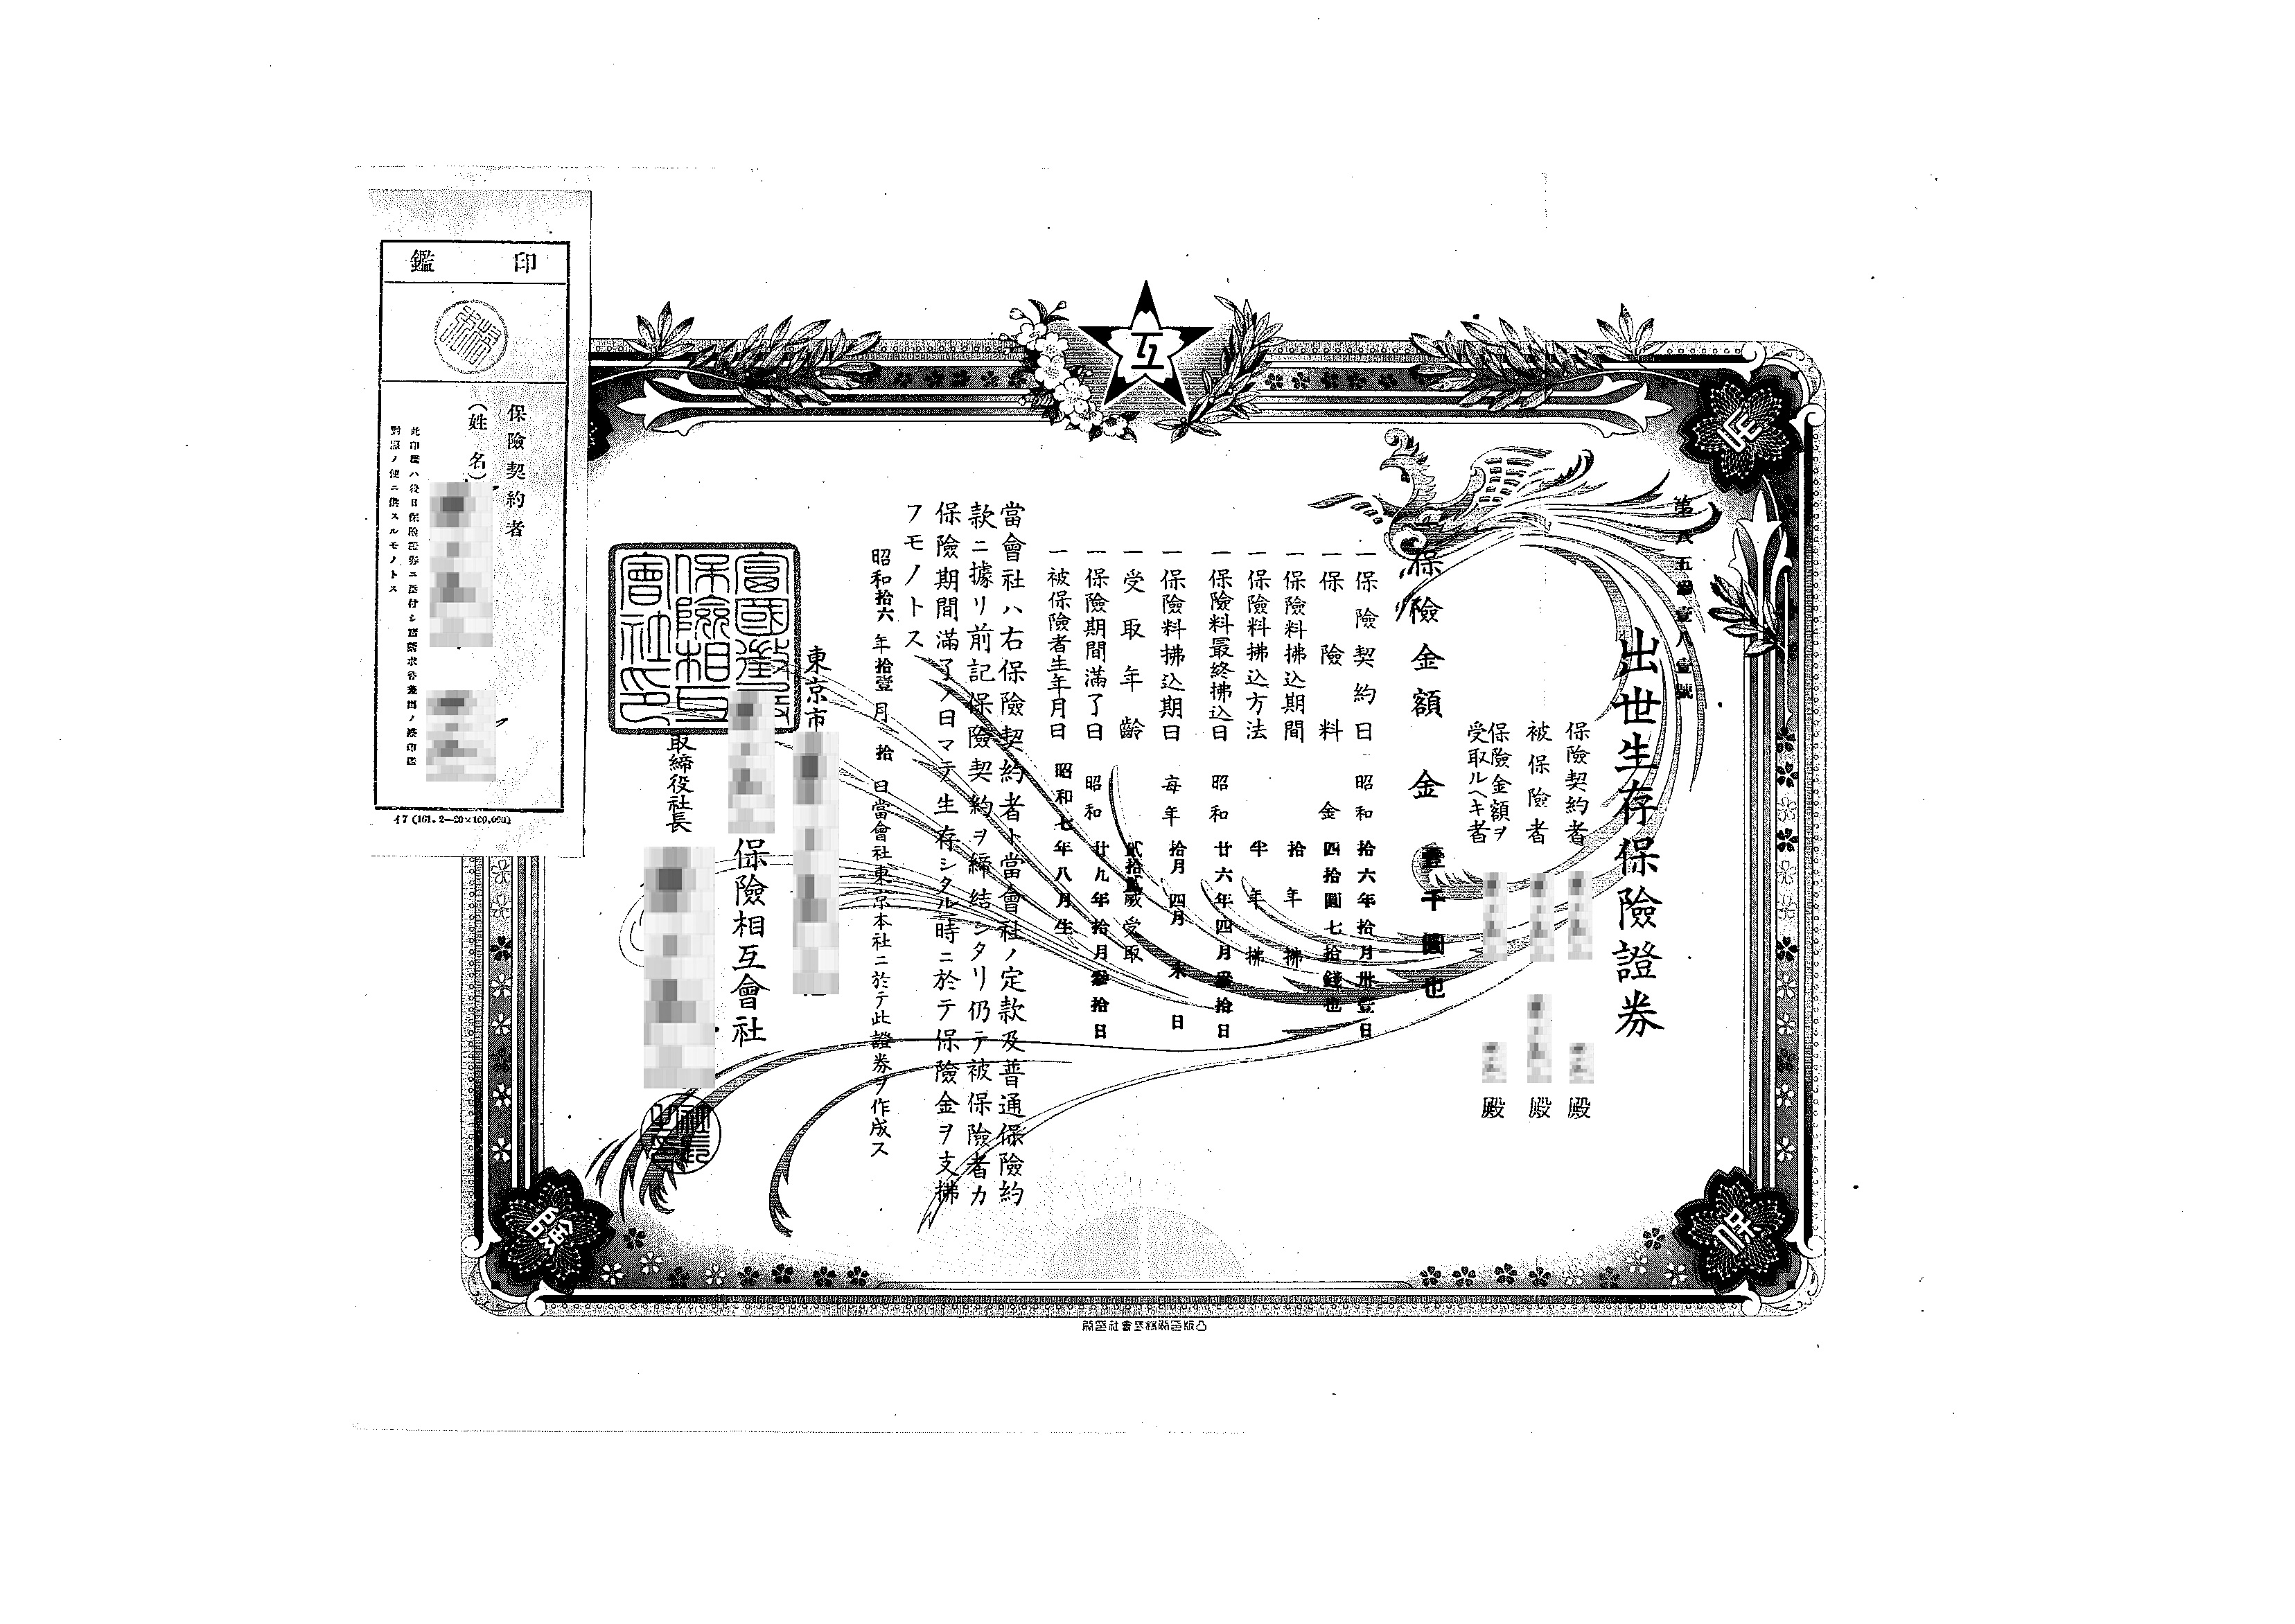 第八五參壹八壹號
出世生存保險證券
保險契約者 殿
被保險者 殿
保險金額ヲ
受取ルヘキ者 殿
一保險金額 金壹千圓也
一保險契約日 昭和拾六年拾月卅壹日
一保險料 金四拾圓七拾錢也
一保險料拂込期間 拾年拂
一保險料拂込方法 半年拂
一保險料最終拂込日 昭和廿六年四月參拾日
一保險料拂込期日 每年拾月四月末日
一受取年齡 貳拾貳歲受取
一保險期間滿了日 昭和廿九年拾月參拾日
一被保險者生年月日 昭和七年八月生
當會社ハ右保險契約者ト當會社ノ定款及普通保險約
款ニ據リ前記保險契約ヲ締結シタリ仍テ被保險者カ
保險期間滿了ノ日マテ生存シタル時ニ於テ保險金ヲ支拂
フモノトス
昭和拾六年拾壹月拾日當會社東京本社ニ於テ此證券ヲ作成ス
東京市
保險相互會社
取締役社長
富國徵兵
保險相互
會社之印
社長
之印
互
生
保
險
印鑑
保險契約者
(姓名)
此印鑑ハ後日保險證券ニ添付シ諸請求書類ノ捺印ト
對照ノ便ニ供スルモノトス
イ7 (161. 2—20×100,000)
凸版印刷株式會社印刷